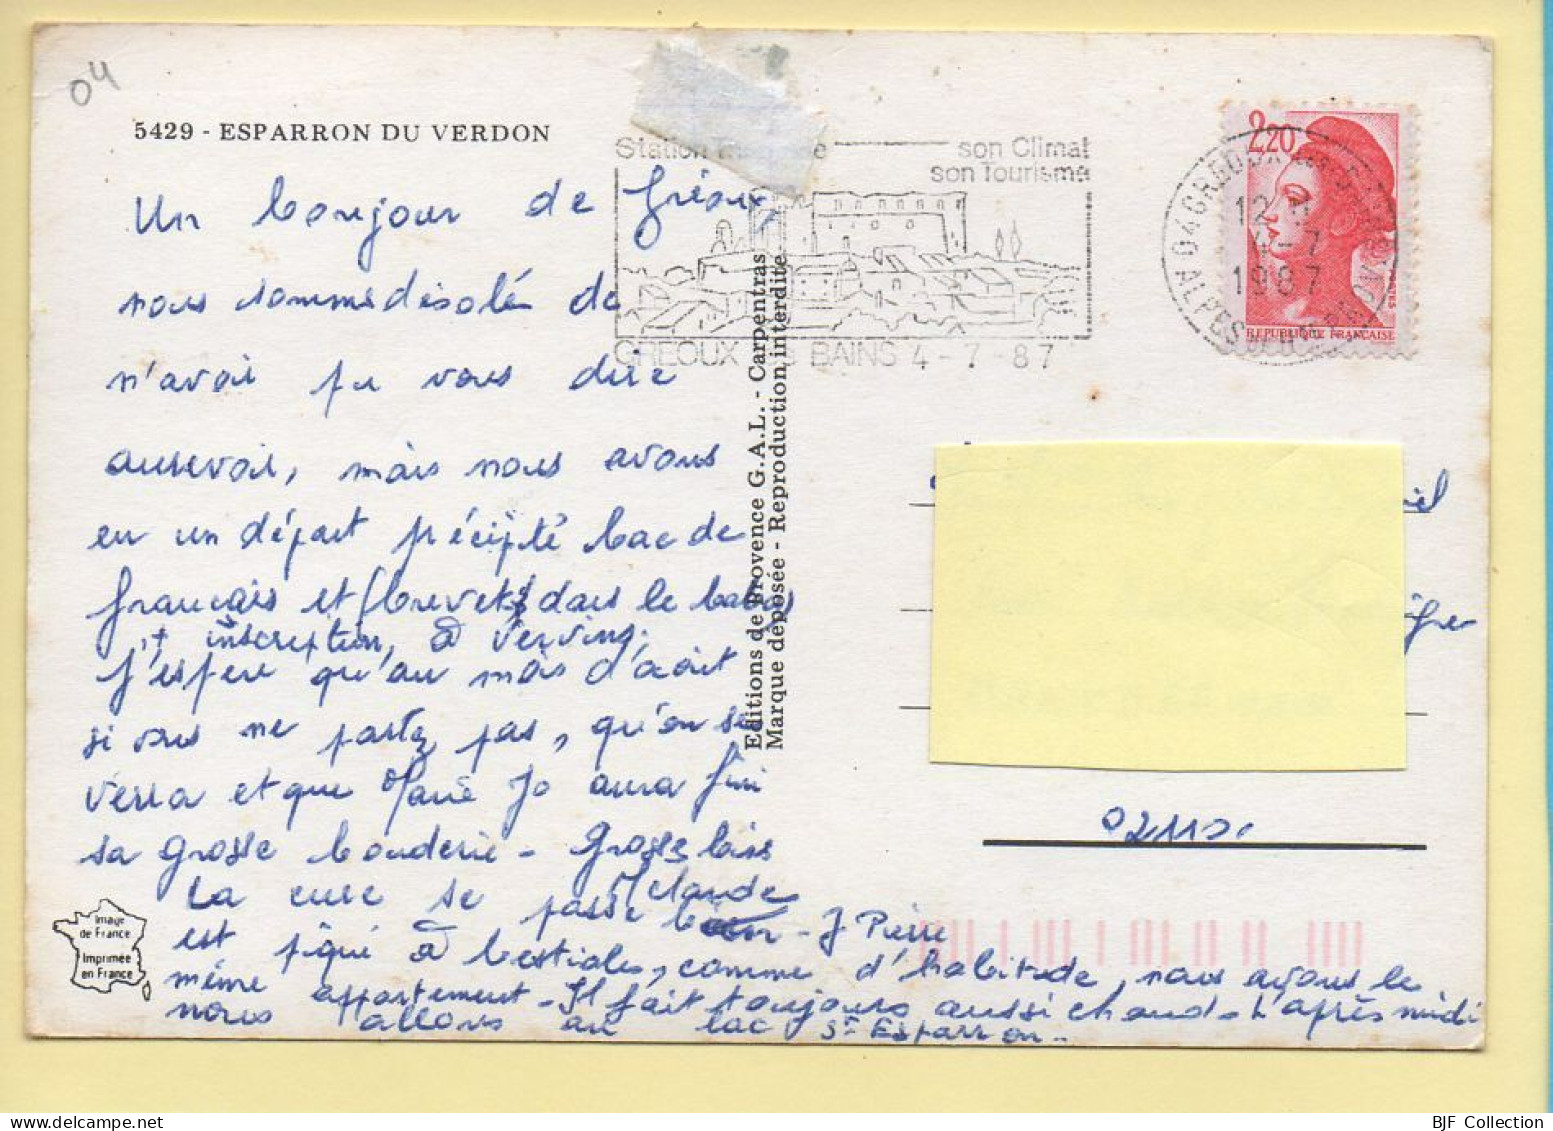 04
5429 - ESPARRON DU VERDON
Station e son Climat
son Tourisme
GREOUX BAINS 4 - 7 - 87
2,20
REPUBLIQUE FRANÇAISE
04 GREOUX
12 H
4 - 7
1987
ALPES
Un bonjour de Gréoux,
nous somme désolé de
n'avoir pu vous dire
aurevoir, mais nous avons
eu un départ précipité bac de
français et (brevet) dans le
et inscription, à Vervins,
J'espere qu'au mois d'août
si vous ne partez pas, qu'on se
verra et que Marie Jo aura fini
sa grosse bouderie - Grosses bises
Mclaude
La cure se passe bien - J Pierre
est piqué à bestioles, comme d'habitude, nous avons le
même appartement - Il fait toujours aussi chaud - L'après midi
nous allons au lac St Esparron -
Editions de Provence G.A.L. - Carpentras
Marque déposée - Reproduction interdite
02110
Image
de France
Imprimée
en France
BJF Collection